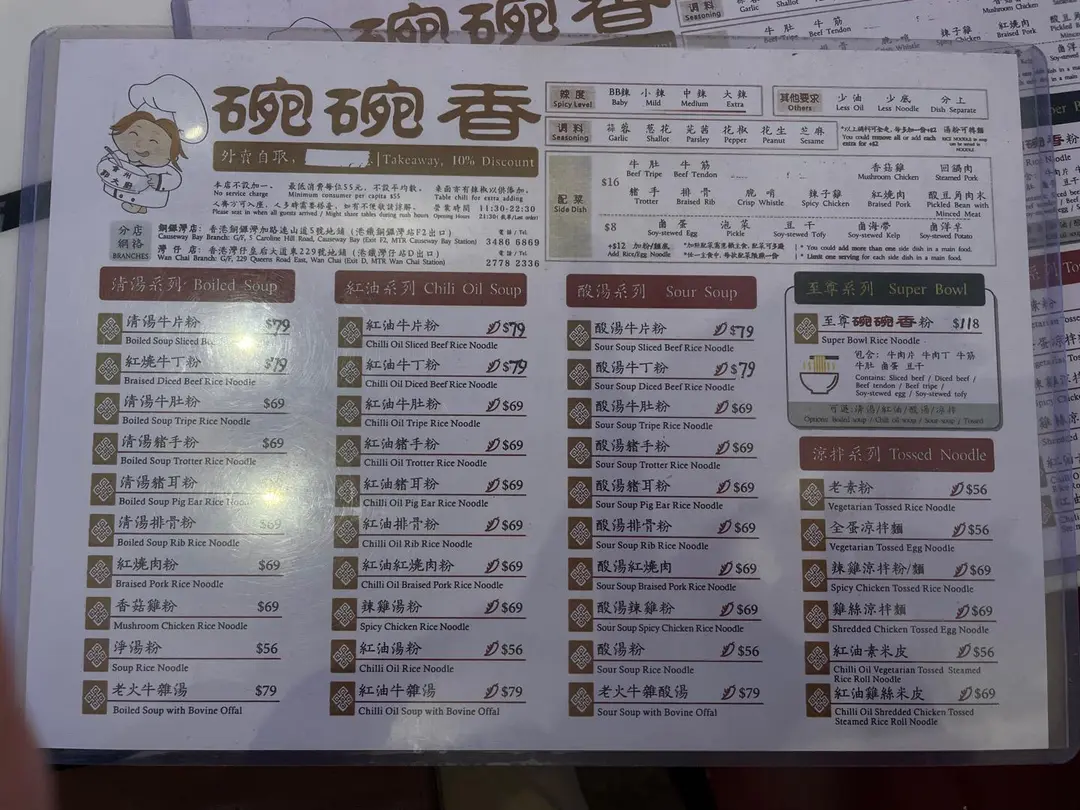 碗碗香
外賣自取, | Takeaway, 10% Discount
本店不設加一。
No service charge
最低消費每位55元，不設平均數。
Minimum consumer per capita $55
桌面亦有辣椒以供添加。
Table chili for extra adding
人齊方可入座，人多時需要搭臺，如有不便敬請諒解。
Please seat in when all guests arrived / Might share tables during rush hours
營業時間 11:30-22:30
Opening Hours
分店網絡
BRANCHES
銅鑼灣店：香港銅鑼灣加路連山道5號地鋪 (港鐵銅鑼灣站F2出口)
Causeway Bay Branch: G/F, 5 Caroline Hill Road, Causeway Bay (Exit F2, MTR Causeway Bay Station)
電話 / Tel.
3486 6869
灣仔店：香港灣仔皇后大道東229號地鋪 (港鐵灣仔站D出口)
Wan Chai Branch: G/F, 229 Queens Road East, Wan Chai (Exit D, MTR Wan Chai Station)
電話 / Tel.
2778 2336
辣度
Spicy Level
BB辣 小辣 中辣 大辣
Baby Mild Medium Extra
其他要求
Others
少油 少底 分上
Less Oil Less Noodle Dish Separate
調料
Seasoning
蒜蓉 蔥花 芫茜 花椒 花生 芝麻
Garlic Shallot Parsley Pepper Peanut Sesame
You could remove all or add each extra for +$2
湯粉可轉麵
配菜
Side Dish
$16
牛肚 牛筋 香菇雞 回鍋肉
Beef Tripe Beef Tendon Mushroom Chicken Steamed Pork
豬手 排骨 脆哨 辣子雞 紅燒肉 酸豆角肉末
Trotter Braised Rib Crisp Whistle Spicy Chicken Braised Pork Pickled Bean with Minced Meat
$8
鹵蛋 泡菜 豆干 鹵海帶 鹵洋芋
Soy-stewed Egg Pickle Soy-stewed Tofy Soy-stewed Kelp Soy-stewed Potato
+$12 加粉/麵底
Add Rice/Egg Noodle
* You could add more than one side dish in a main food.
* Limit one serving for each side dish in a main food.
清湯系列 Boiled Soup
清湯牛片粉 $79
Boiled Soup Sliced
紅燒牛丁粉 $79
Braised Diced Beef Rice Noodle
清湯牛肚粉 $69
Boiled Soup Tripe Rice Noodle
清湯豬手粉 $69
Boiled Soup Trotter Rice Noodle
清湯豬耳粉
Boiled Soup Pig Ear Rice Noodle
清湯排骨粉 $69
Boiled Soup Rib Rice Noodle
紅燒肉粉 $69
Braised Pork Rice Noodle
香菇雞粉 $69
Mushroom Chicken Rice Noodle
淨湯粉 $56
Soup Rice Noodle
老火牛雜湯 $79
Boiled Soup with Bovine Offal
紅油系列 Chili Oil Soup
紅油牛片粉 $79
Chilli Oil Sliced Beef Rice Noodle
紅油牛丁粉 $79
Chilli Oil Diced Beef Rice Noodle
紅油牛肚粉 $69
Chilli Oil Tripe Rice Noodle
紅油豬手粉 $69
Chilli Oil Trotter Rice Noodle
紅油豬耳粉 $69
Chilli Oil Pig Ear Rice Noodle
紅油排骨粉 $69
Chilli Oil Rib Rice Noodle
紅油紅燒肉粉 $69
Chilli Oil Braised Pork Rice Noodle
辣雞湯粉 $69
Spicy Chicken Rice Noodle
紅油湯粉 $56
Chilli Oil Rice Noodle
紅油牛雜湯 $79
Chilli Oil Soup with Bovine Offal
酸湯系列 Sour Soup
酸湯牛片粉 $79
Sour Soup Sliced Beef Rice Noodle
酸湯牛丁粉 $79
Sour Soup Diced Beef Rice Noodle
酸湯牛肚粉 $69
Sour Soup Tripe Rice Noodle
酸湯豬手粉 $69
Sour Soup Trotter Rice Noodle
酸湯豬耳粉 $69
Sour Soup Pig Ear Rice Noodle
酸湯排骨粉 $69
Sour Soup Rib Rice Noodle
酸湯紅燒肉 $69
Sour Soup Braised Pork Rice Noodle
酸湯辣雞粉 $69
Sour Soup Spicy Chicken Rice Noodle
酸湯粉 $56
Sour Soup Rice Noodle
老火牛雜酸湯 $79
Sour Soup with Bovine Offal
至尊系列 Super Bowl
至尊碗碗香粉 $118
Super Bowl Rice Noodle
包含：牛肉片 牛肉丁 牛筋
牛肚 鹵蛋 豆干
Contains: Sliced beef / Diced beef /
Beef tendon / Beef tripe /
Soy-stewed egg / Soy-stewed tofy
可選：清湯/紅油/酸湯/涼拌
Options: Boiled soup / Chili oil soup / Sour soup / Tossed
涼拌系列 Tossed Noodle
老素粉 $56
Vegetarian Tossed Rice Noodle
全蛋涼拌麵 $56
Vegetarian Tossed Egg Noodle
辣雞涼拌粉/麵 $69
Spicy Chicken Tossed Rice Noodle
雞絲涼拌麵 $69
Shredded Chicken Tossed Egg Noodle
紅油素米皮 $56
Chilli Oil Vegetarian Tossed Steamed
Rice Roll Noodle
紅油雞絲米皮 $69
Chilli Oil Shredded Chicken Tossed
Steamed Rice Roll Noodle